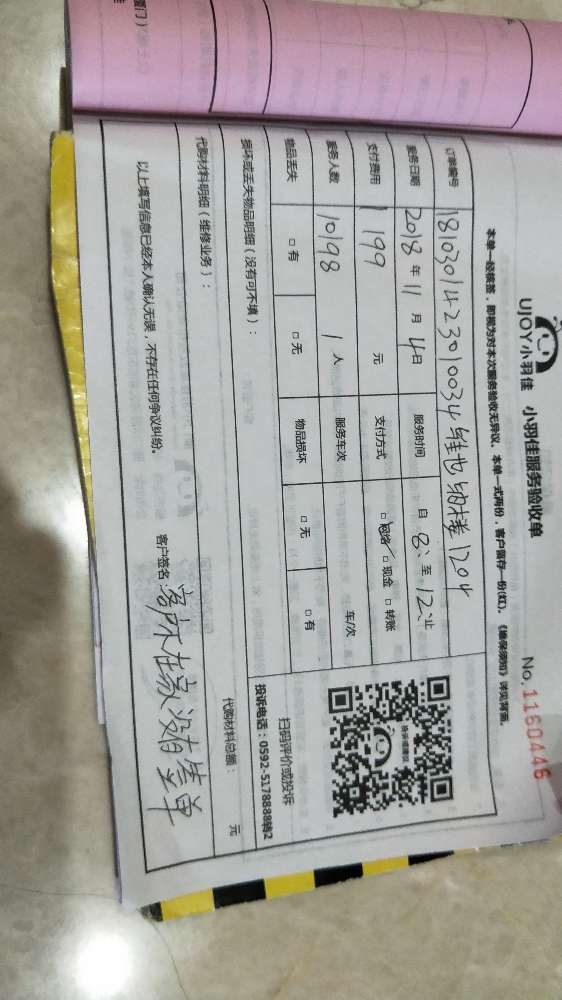 UJOY小羽佳 小羽佳服务验收单
No.1160446
本单一经核签，即视为对本次服务验收无异议。本单一式两份，客户留存一份(红)。《维保须知》详见背面。
订单编号 1810301423010034 维也纳楼1204
服务日期 2018年11月4日 服务时间 自8:至12:止
支付费用 199元 支付方式 □网络 □现金 □转账
服务人数 10198 1人 服务车次 车/次
物品丢失 □有 □无 物品损坏 □无 □有
扫码评价或投诉
投诉电话：0592-5178888转2
损坏或丢失物品明细（没有可不填）：
代购材料明细（维修业务）： 代购材料总额： 元
以上填写信息已经本人确认无误，不存在任何争议纠纷。
客户签名：客户不在家没有签单